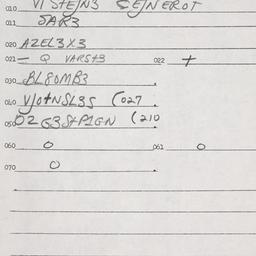 010 VI StEJN3 SEJNEROT
011 SAR3
020 AZEL3X3
021 - Q VARSt3 022 +
030 BL80MB3 .
040 VJOtNSL3S (027 .
050 DZG3StPIGN (210
060 0 061 0
070 0 .